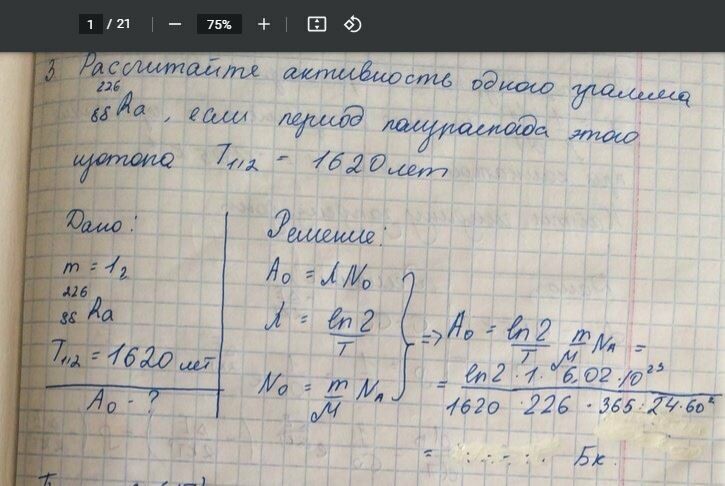 1 / 21 75%
3 Рассчитайте активность одного грамма
²²⁶₈₈Ra, если период полураспада этого
изотопа T₁/₂ = 1620 лет
Дано:
m = 1г
²²⁶₈₈Ra
T₁/₂ = 1620 лет
A₀ - ?
Решение:
A₀ = λN₀
λ = ln2/T
N₀ = m/M Nₐ
=> A₀ = ln2/T m/M Nₐ =
= ln2 · 1 · 6,02 · 10²³ / 1620 · 226 · 365 · 24 · 60²
= Бк.